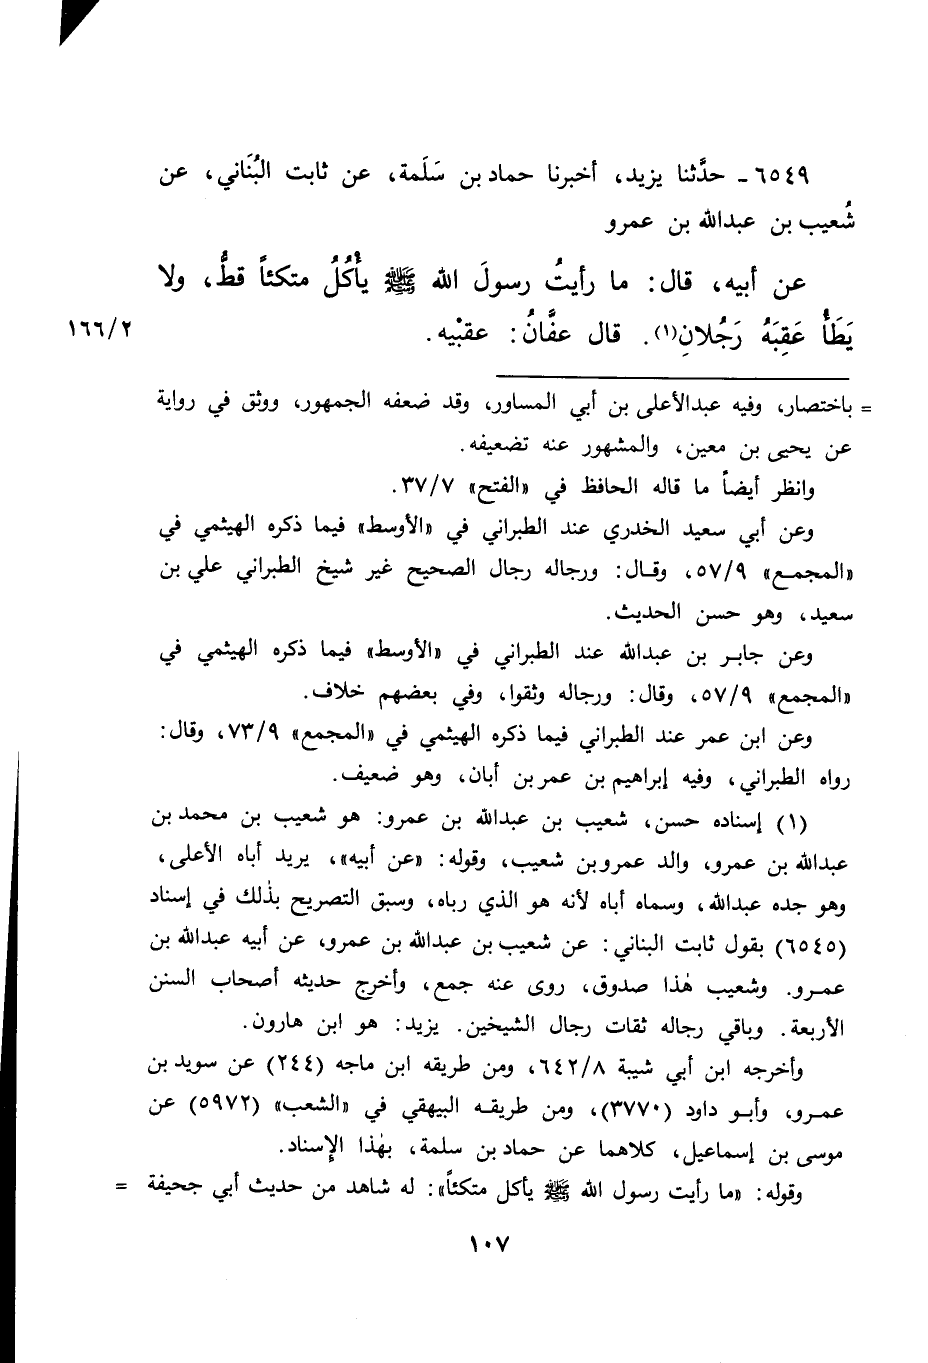 ٦٥٤٩ـ حدَّثنا يزيد، أخبرنا حماد بن سَلَمة، عن ثابت البُنَاني، عن
شُعيب بن عبدالله بن عمرو
عن أبيه، قال: ما رأيتُ رسولَ الله ﷺ يأْكُلُ متكئاً قطُّ، ولا
يَطَأُ عَقِبَهُ رَجُلانِ(١). قال عفَّانُ: عقبْيه.
١٦٦/٢
= باختصار، وفيه عبدالأعلى بن أبي المساور، وقد ضعفه الجمهور، ووثق في رواية
عن يحيى بن معين، والمشهور عنه تضعيفه.
وانظر أيضاً ما قاله الحافظ في «الفتح» ٣٧/٧.
وعن أبي سعيد الخدري عند الطبراني في «الأوسط» فيما ذكره الهيثمي في
«المجمع» ٥٧/٩، وقال: ورجاله رجال الصحيح غير شيخ الطبراني علي بن
سعيد، وهو حسن الحديث.
وعن جابر بن عبدالله عند الطبراني في «الأوسط» فيما ذكره الهيثمي في
«المجمع» ٥٧/٩، وقال: ورجاله وثقوا، وفي بعضهم خلاف.
وعن ابن عمر عند الطبراني فيما ذكره الهيثمي في «المجمع» ٧٣/٩، وقال:
رواه الطبراني، وفيه إبراهيم بن عمر بن أبان، وهو ضعيف.
(١) إسناده حسن، شعيب بن عبدالله بن عمرو: هو شعيب بن محمد بن
عبدالله بن عمرو، والد عمرو بن شعيب، وقوله: «عن أبيه»، يريد أباه الأعلى،
وهو جده عبدالله، وسماه أباه لأنه هو الذي رباه، وسبق التصريح بذٰلك في إسناد
(٦٥٤٥) بقول ثابت البناني: عن شعيب بن عبدالله بن عمرو، عن أبيه عبدالله بن
عمرو. وشعيب هٰذا صدوق، روى عنه جمع، وأخرج حديثه أصحاب السنن
الأربعة. وباقي رجاله ثقات رجال الشيخين. يزيد: هو ابن هارون.
وأخرجه ابن أبي شيبة ٦٤٢/٨، ومن طريقه ابن ماجه (٢٤٤) عن سويد بن
عمرو، وأبو داود (٣٧٧٠)، ومن طريقه البيهقي في «الشعب» (٥٩٧٢) عن
موسى بن إسماعيل، كلاهما عن حماد بن سلمة، بهٰذا الإسناد.
وقوله: «ما رأيت رسول الله ﷺ يأكل متكئاً»: له شاهد من حديث أبي جحيفة =
١٠٧